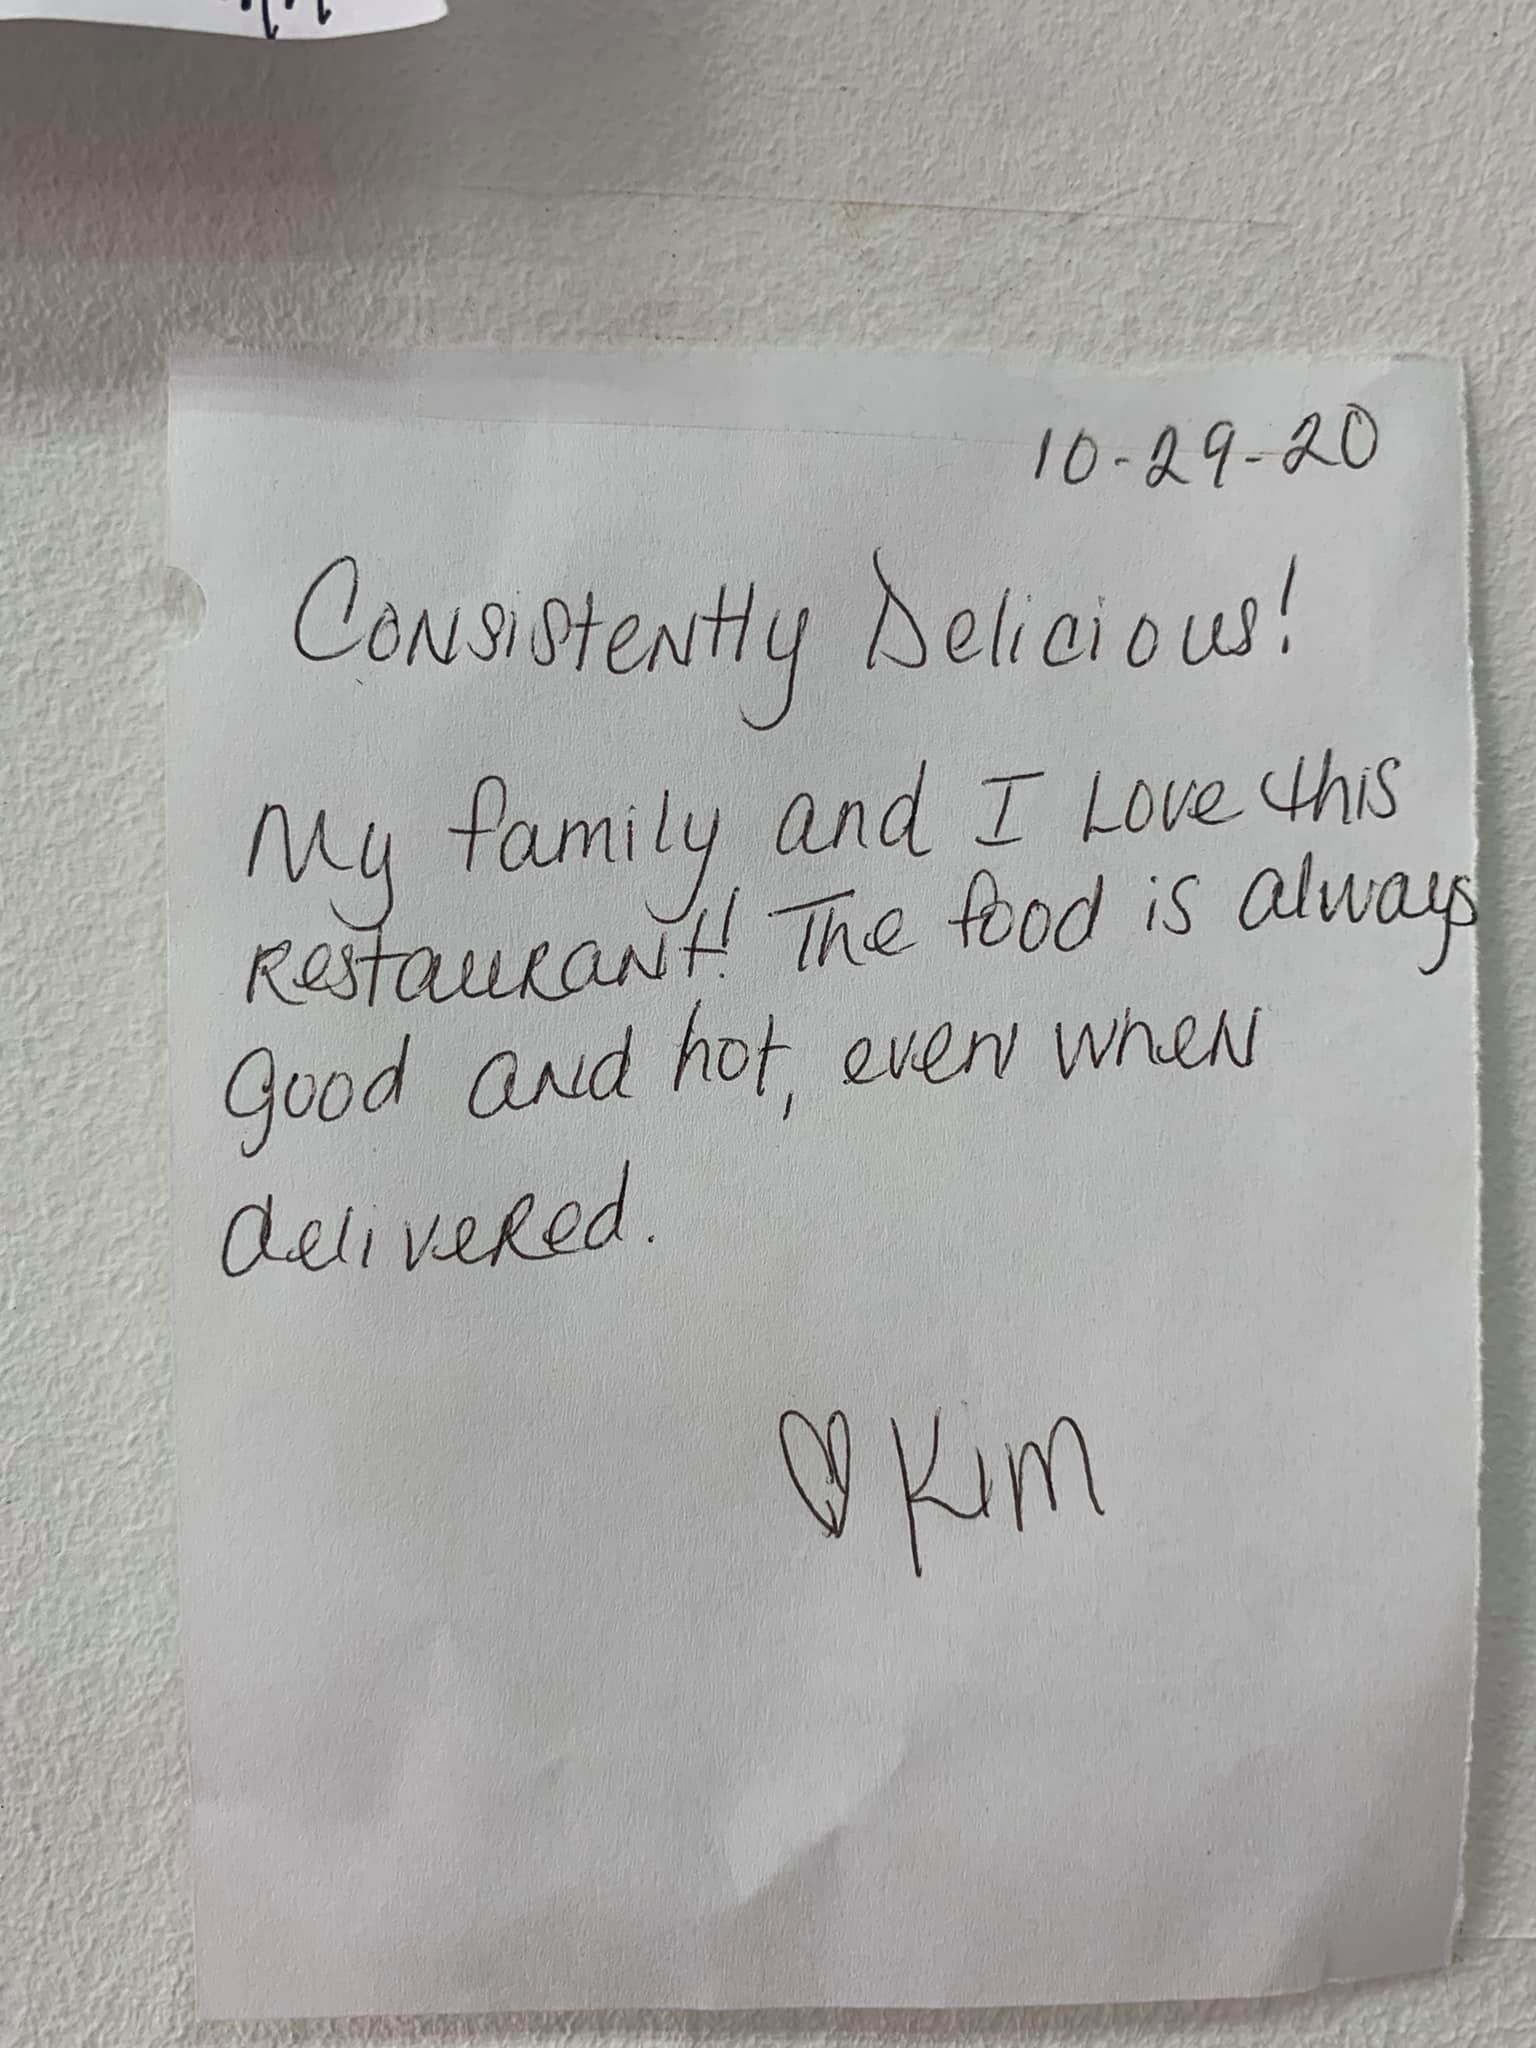 10-29-20
Consistently Delicious!
My family and I Love this
Restaurant! The food is always
good and hot, even when
delivered.
♡ Kim